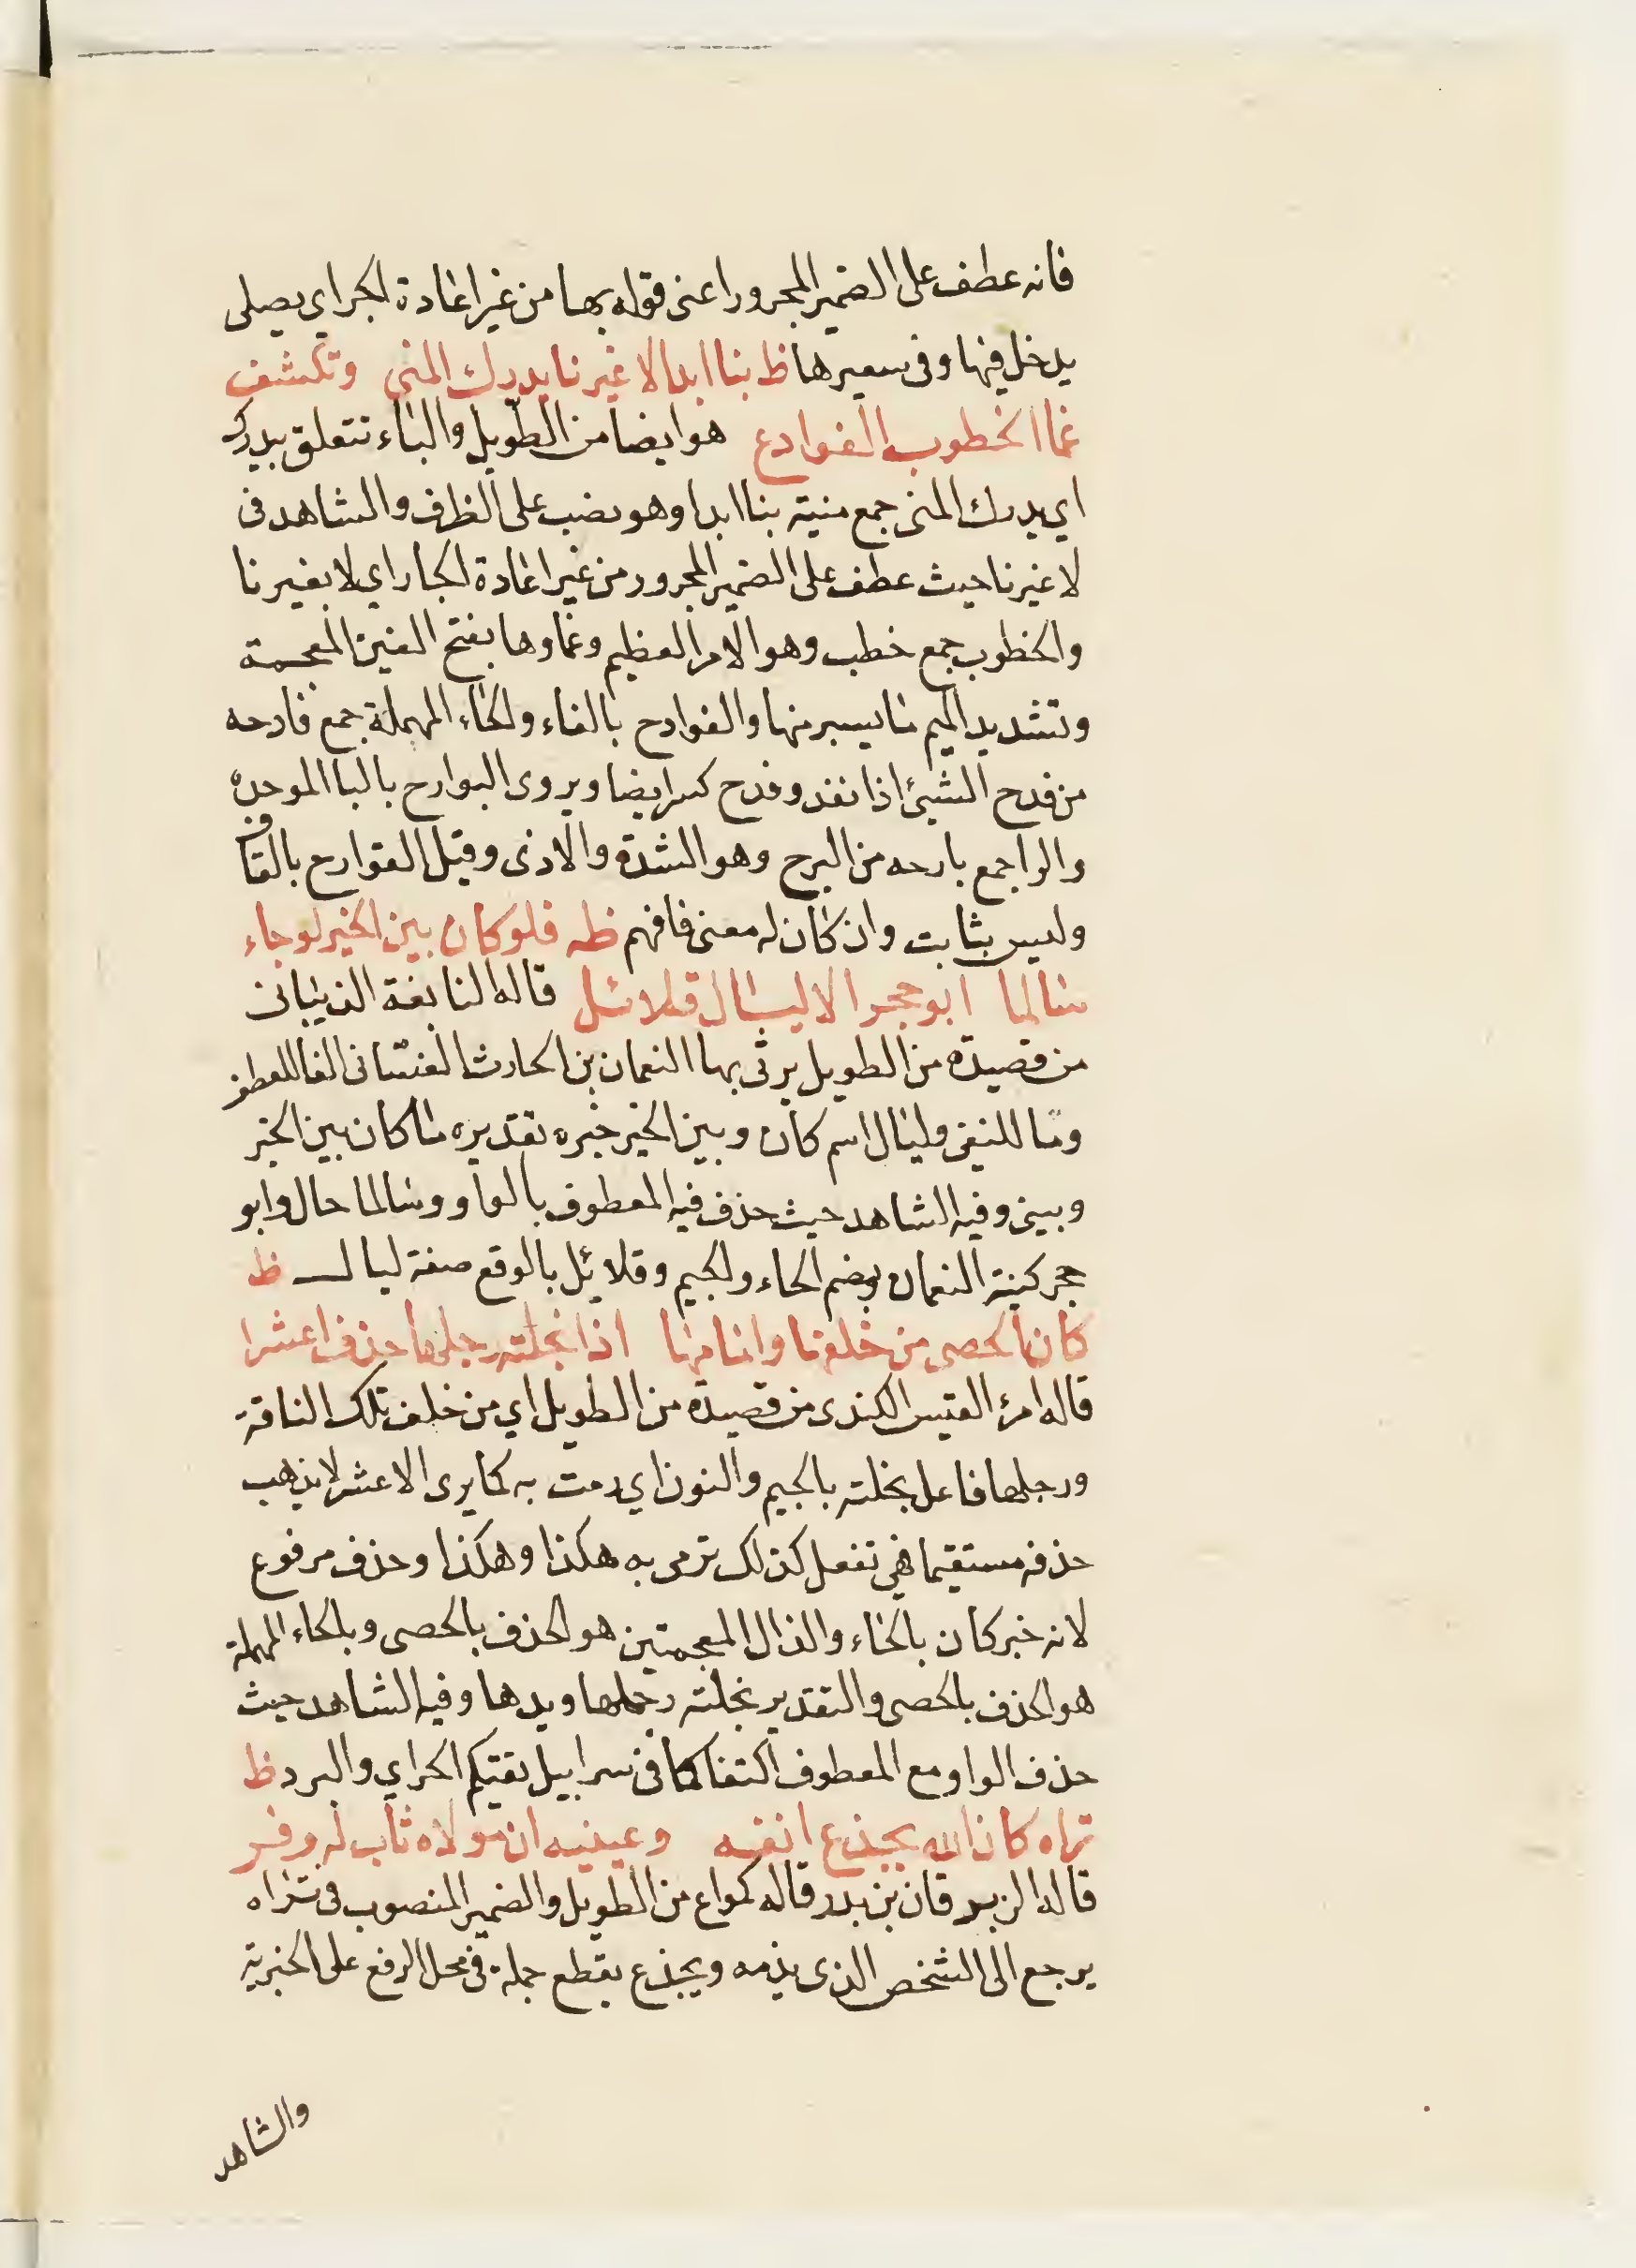 فانه عطف على الضمير المجرور اعنى قوله بها من غير اعادة الجر اي يصلى
يدخل فيها وفى سعيرها ظ بنا ابدا لا غيرنا يدرك المنى وتكشف
غما الخطوب الفوادع هو ايضا من الطويل والباء تتعلق بيدرك
اي يدرك المنى جمع منية بنا ابدا وهو نصب على الظرف والشاهد فى
لا غيرنا حيث عطف على الضمير المجرور من غير اعادة الجار اي لا بغيرنا
والخطوب جمع خطب وهو الامر العظيم وغماوها بفتح الغين المعجمة
وتشديد الميم ما يسير منها والفوادح بالفاء والحاء المهملة جمع فادحه
من فدح الشئ اذا نفذ وفدح كسر ايضا ويروى البوارح بالبا الموحدة
والرا جمع بارحه من البرح وهو الشدة والاذى وقيل القوارح بالقاف
وليس بثابت وان كان له معنى فافهم ظه فلو كان بين الخير لو جاء
سالما ابو حجر الا ليال قلائل قاله النابغة الذبيانى
من قصيدة من الطويل يرثى بها النعمان بن الحارث الغسانى الفا للعطف
وما للنفى وليال اسم كان وبين الخير خبره تقديره ما كان بين الخير
وبينى وفيه الشاهد حيث حذف فيه المعطوف بالواو وسالما حال وابو
حجر كنية النعمان بضم الحاء والجيم وقلائل بالرفع صفة ليال ظ
كان الحصى من خلفها وامامها اذا نجلته رجلها حذف اعشرا
قاله امرئ القيس الكندى من قصيدة من الطويل اي من خلف تلك الناقة
ورجلها فاعل نجلته بالجيم والنون اي رمت به كما يرى الاعشر لا يذهب
حذفه مستقيما فهي تفعل كذلك ترمى به هكذا وهكذا وحذف مرفوع
لانه خبر كان بالخاء والذال المعجمتين هو الحذف بالحصى وبالحاء المهملة
هو الحذف بالحصى والتقدير نجلته رجلها ويدها وفيه الشاهد حيث
حذف الواو مع المعطوف اكتفا كما فى سرابيل تقيكم الحر اي والبرد ظ
تراه كان الله يجذع انفه وعينيه ان مولاه ثاب له وفر
قاله الزبرقان بن بدر قاله كراع من الطويل والضمير المنصوب فى تراه
يرجع الى الشخص الذى يذمه ويجذع يقطع جملة فى محل الرفع على الخبرية
والشاهد